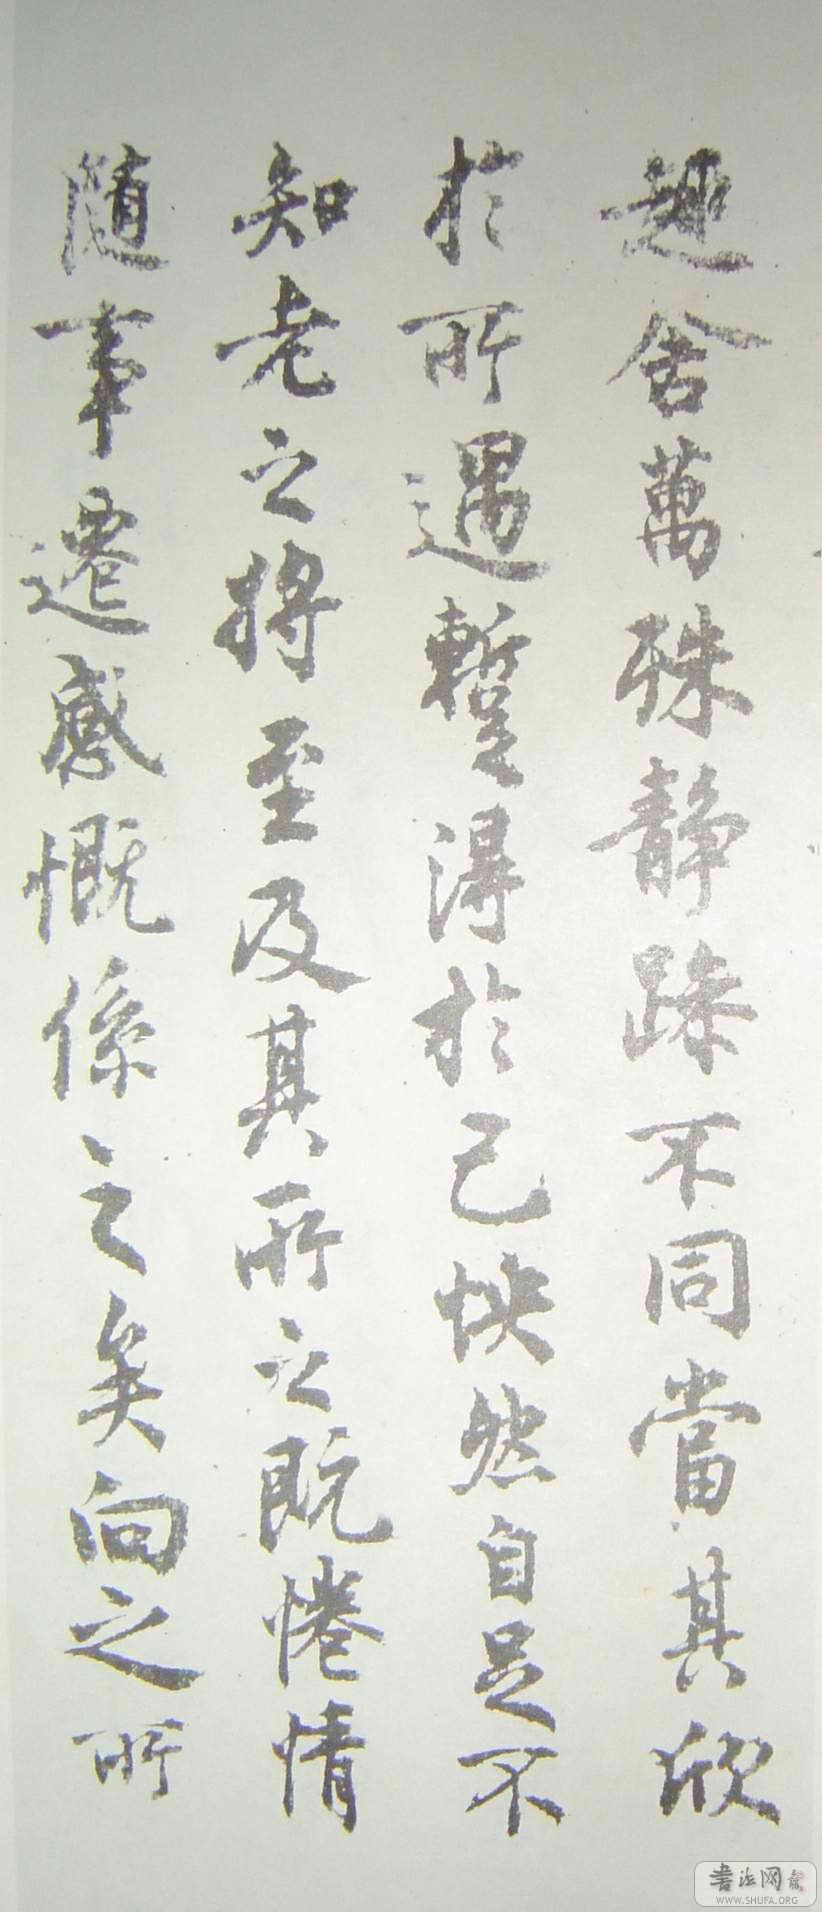 趣舍萬殊静躁不同當其欣
於所遇暫得於己怏然自足不
知老之將至及其所之既惓情
随事遷感慨係之矣向之所
書法网
WWW.SHUFA.ORG